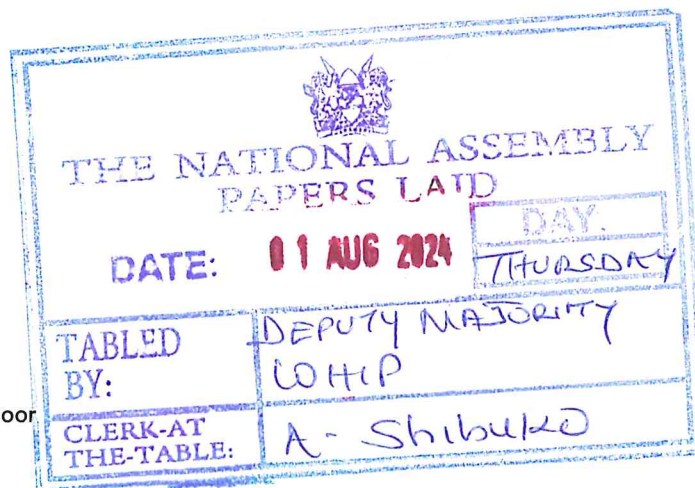 THE NATIONAL ASSEMBLY
PAPERS LAID
DATE: 01 AUG 2024
DAY.
THURSDAY
TABLED BY:
DEPUTY MAJORITY
WHIP
oor
CLERK-AT
THE-TABLE:
A- Shibuko